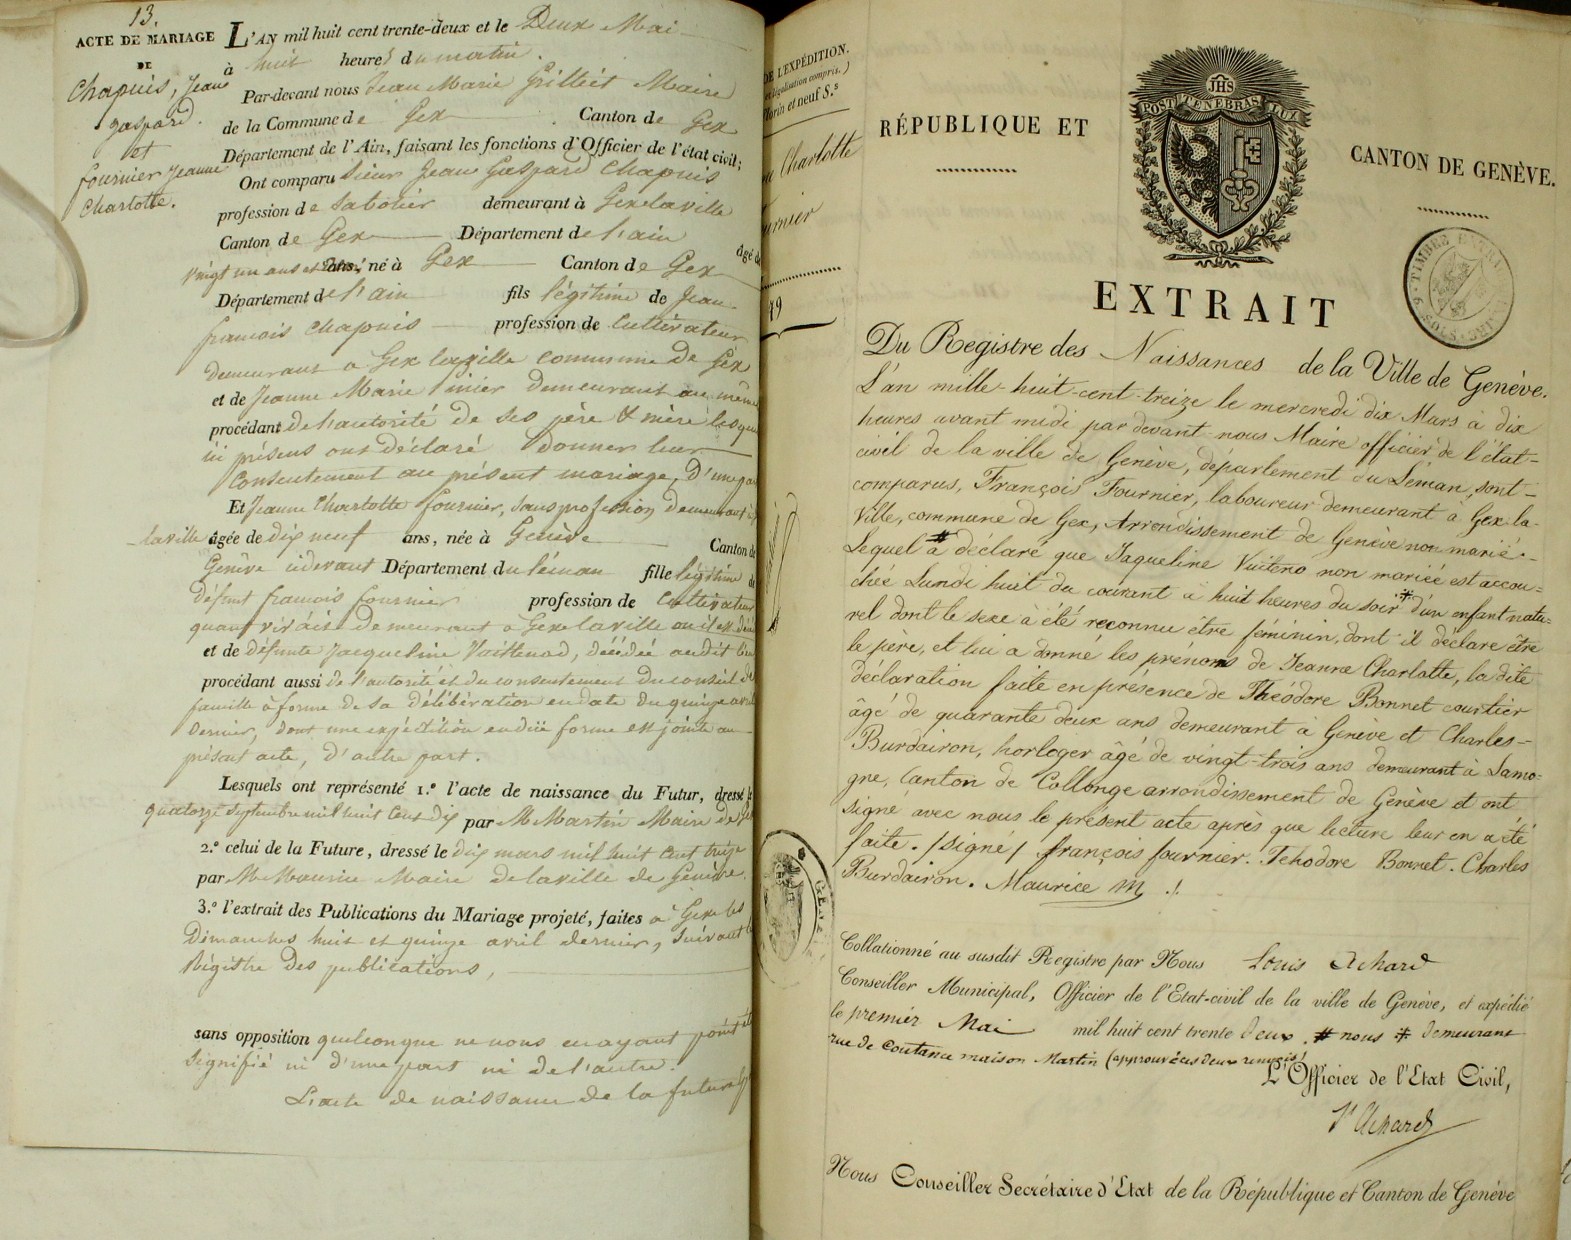 13.
ACTE DE MARIAGE
DE
Chapuis, Jean
gaspard.
et
fournier Jeanne
Charlotte.
L'AN mil huit cent trente-deux et le Deux Mai
à huit heures du matin.
Par-devant nous Jean Marie Grilliet Maire
de la Commune de Gex Canton de Gex
Département de l'Ain, faisant les fonctions d'Officier de l'état civil;
Ont comparu Sieur Jean Gaspard Chapuis
profession de Sabotier demeurant à Gex laville
Canton de Gex Département de l'ain âgé de
vingt un ans et né à Gex Canton de Gex
Département de l'ain fils légitime de Jean
françois Chapuis profession de Cultivateur
demeurant a Gex laville Commune de Gex
et de Jeanne Marie demeurant au même
procédant de l'autorité de ses père & mère lesque
ici présens ont déclaré donner leur
Consentement au présent mariage, d'une pa
Et Jeanne Charlotte fournier, sans profession demeurant à
laville âgée de dix neuf ans, née à Genève Canton de
Genève cidevant Département du léman fille légitime de
défunt françois fournier profession de Cultivateur
quand vivait demeurant a Gex laville où il est décé
et de défunte Jacqueline Vaittenod, décédée audit lieu
procédant aussi de l'autorité et du consentement du conseil de
famille à forme de sa délibération en date du quinze avril
dernier, dont une expédition en due forme est jointe au
présent acte, d'autre part.
Lesquels ont représenté 1.º l'acte de naissance du Futur, dressé le
quatorze Septembre mil huit Cent dix par M Martin Maire de Gex
2.º celui de la Future, dressé le dix mars mil huit Cent treize
par M Maurice Maire de la ville de Genève.
3.º l'extrait des Publications du Mariage projeté, faites à Gex les
Dimanches huit et quinze avril dernier, suivant le
Régistre des publications,
sans opposition quelconque ne nous en ayant point été
signifié ni d'une part ni de l'autre.
L'acte de naissance de la future
DE L'EXPÉDITION.
légalisation compris.)
florin et neuf S.s
Charlotte
urnier
RÉPUBLIQUE ET
JHS
POST TENEBRAS LUX
CANTON DE GENÈVE.
EXTRAIT
Du Registre des Naissances de la Ville de Genève.
L'an mille-huit-cent-treize le mercredi dix Mars à dix
heures avant midi par devant nous Maire officier de l'état-
civil de la ville de Genève, département du Léman, sont-
comparus, François Fournier, laboureur demeurant à Gex-la-
Ville, commune de Gex, Arrondissement de Genève non marié.-
Lequel a # déclaré que Jaqueline Vuiteno non mariée est accou-
chée Lundi huit du courant à huit heures du soir * d'un enfant natu-
rel dont le sexe à été reconnu être féminin, dont il déclare être
le père, et lui a donné les prénoms de Jeanne Charlotte, la dite
déclaration faite en présence de Théodore Bonnet courtier
âgé de quarante deux ans demeurant à Genève et Charles-
Burdairon, horloger âgé de vingt-trois ans demeurant à Samo-
gne, Canton de Collonge arrondissement de Genève et ont
signé avec nous le présent acte après que lecture leur en a été
faite. /signé/ françois fournier. Tehodore Bonnet. Charles
Burdairon. Maurice M /.
Collationné au susdit Registre par Nous Louis Achard
Conseiller Municipal, Officier de l'Etat-civil de la ville de Genève, et expédié
le premier Mai mil huit cent trente deux. # nous * demeurant
rue de Coutance maison Martin (approuvé ces deux renvois)
L'Officier de l'Etat Civil,
Ls Achard
Nous Conseiller Secrétaire d'Etat de la République et Canton de Genève